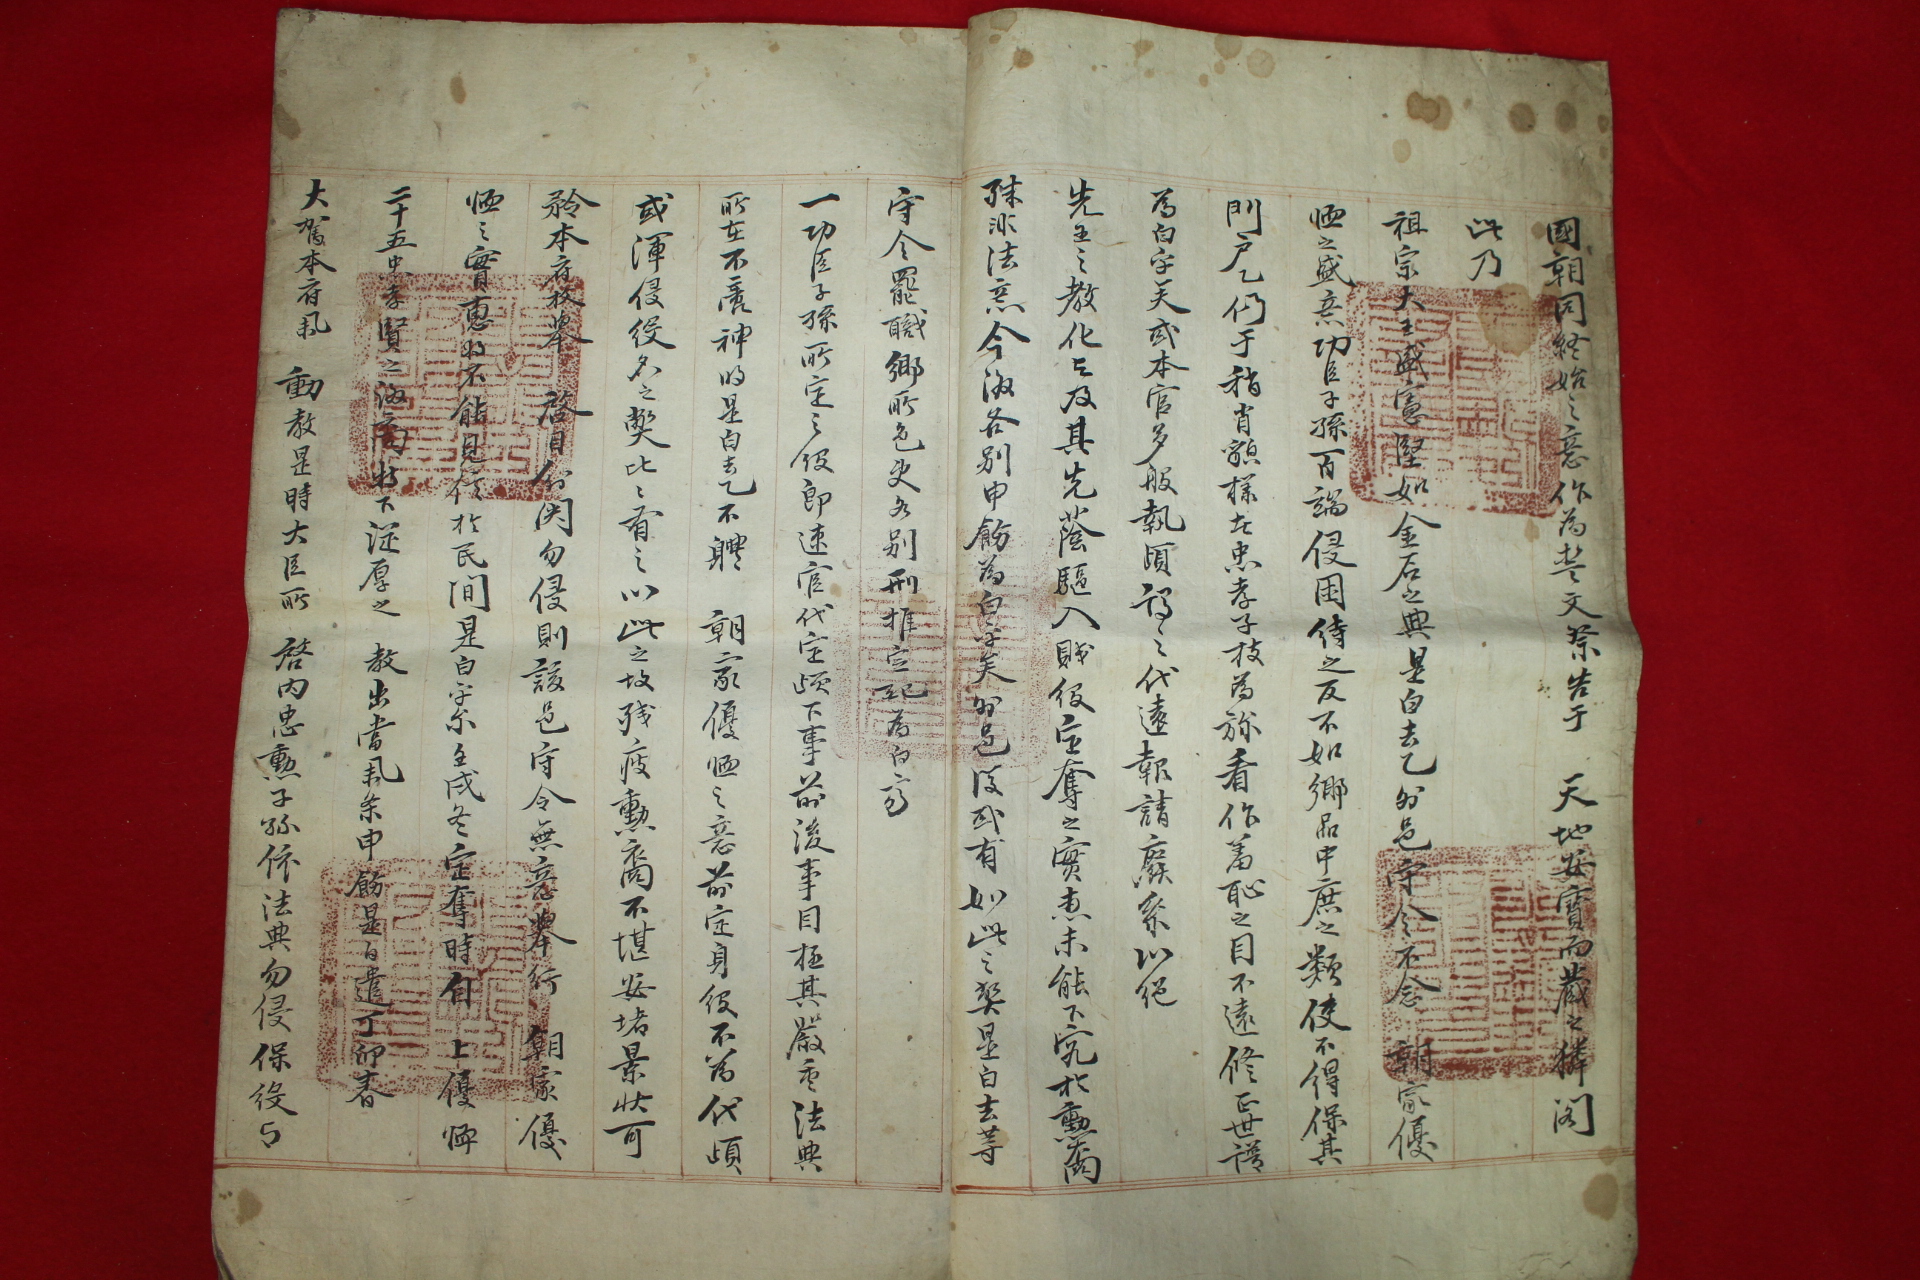 國朝同終始之意作爲誓文祭告于 天地安寶而藏之獜閣
此乃
祖宗大王盛憲堅如金石之典是白去乙外邑守令不念 朝家優
恤之盛意功臣子孫百端侵困待之反不如鄉品中庶之類使不得保其
門戶乙仍于稍肖貌樣在忠孝子枝爲弥看作羞恥之目不遠修正世譜
爲白乎矣或本官多般執頉 之代遠報請 祭以絕
先王之教化是及其先蔭驅入賤役定奪之實惠未能下究於勳裔
殊非法意今後各別申飭爲白乎矣外邑段或有如此之弊是白去等
守令罷職鄉所色吏各別刑推定配爲白齊
一功臣子孫所定之役卽速官代定頉下事前後事目極其嚴重法典
所在不啻神明是白去乙不體 朝家優恤之意前定身役不爲代頉
或渾侵役名之弊比比有之以此之故殘疲勳裔不堪安堵景狀可
矜本府枚擧 啓目行關勿侵則該邑守令無意擧行 朝家優
恤之實惠將不能見信於民間是白乎尔壬戌冬定奪時自 上優恤
二十五忠孝賢之後之問特下從厚之 教出當氣条申飭是白遣丁卯春
大駕本府氣 動教是時大臣所 啓內忠勳子孫依法典勿侵保役与